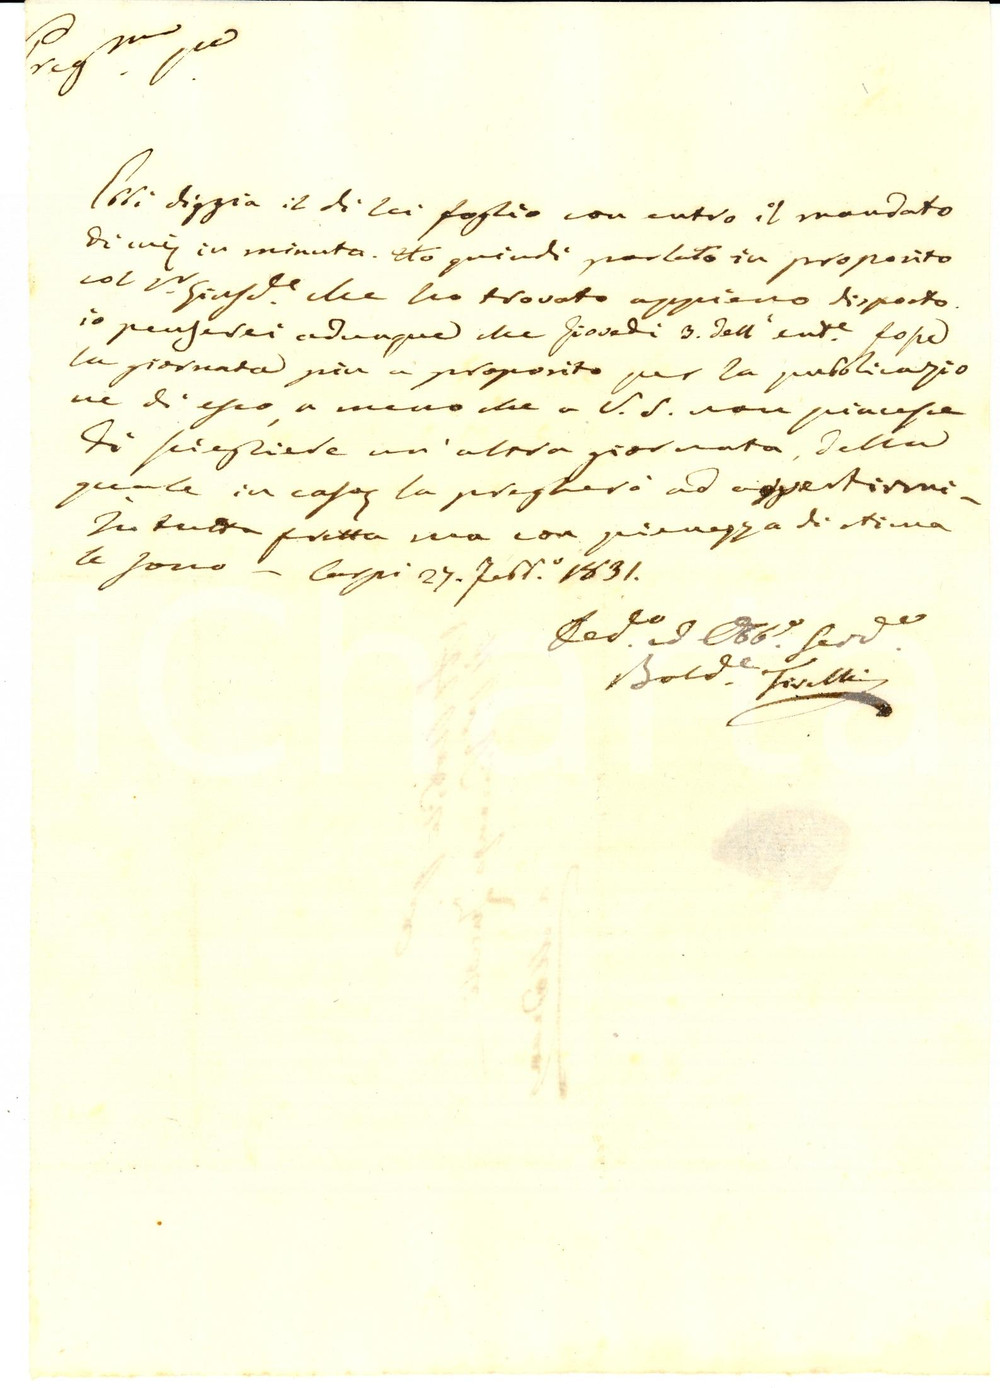 Preg.mo
Ebbi diggià il di lei foglio con entro il mandato
di in minuta. Ho quindi parlato in proposito
col che ho trovato appieno disposto.
io penserei adunque che Giovedì 3. dell'ent.e fosse
la giornata più a proposito per la pubblicazio
ne di esso, a meno che a V. S. non piacesse
di scegliere un'altra giornata, della
quale in caso la pregherò ad avvertirmi-
In tutta fretta ma con pienezza di stima
le sono - Carpi 27. Febb.o 1831.
Dev.o ed Obb.o Serv.e
Bald.e Tirelli